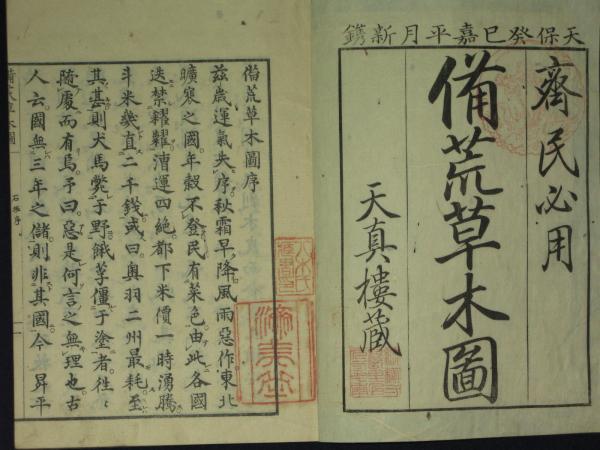 天保癸巳嘉平月新鐫
齊民必用
備荒草木圖
天真樓蔵
備荒草木圖序
茲歳運氣失序秋霜早降風雨惡作東北
曠寒之國年穀不登民有菜色由此各國
迭禁糶糴漕運四絶都下米價一時湧騰
斗米幾直二千錢或曰奥羽二州最耗至
其甚則犬馬斃于野餓莩僵于塗者徃〻
随處而有焉予曰惡是何言之無理也古
人云國無三年之儲則非其國今昇平